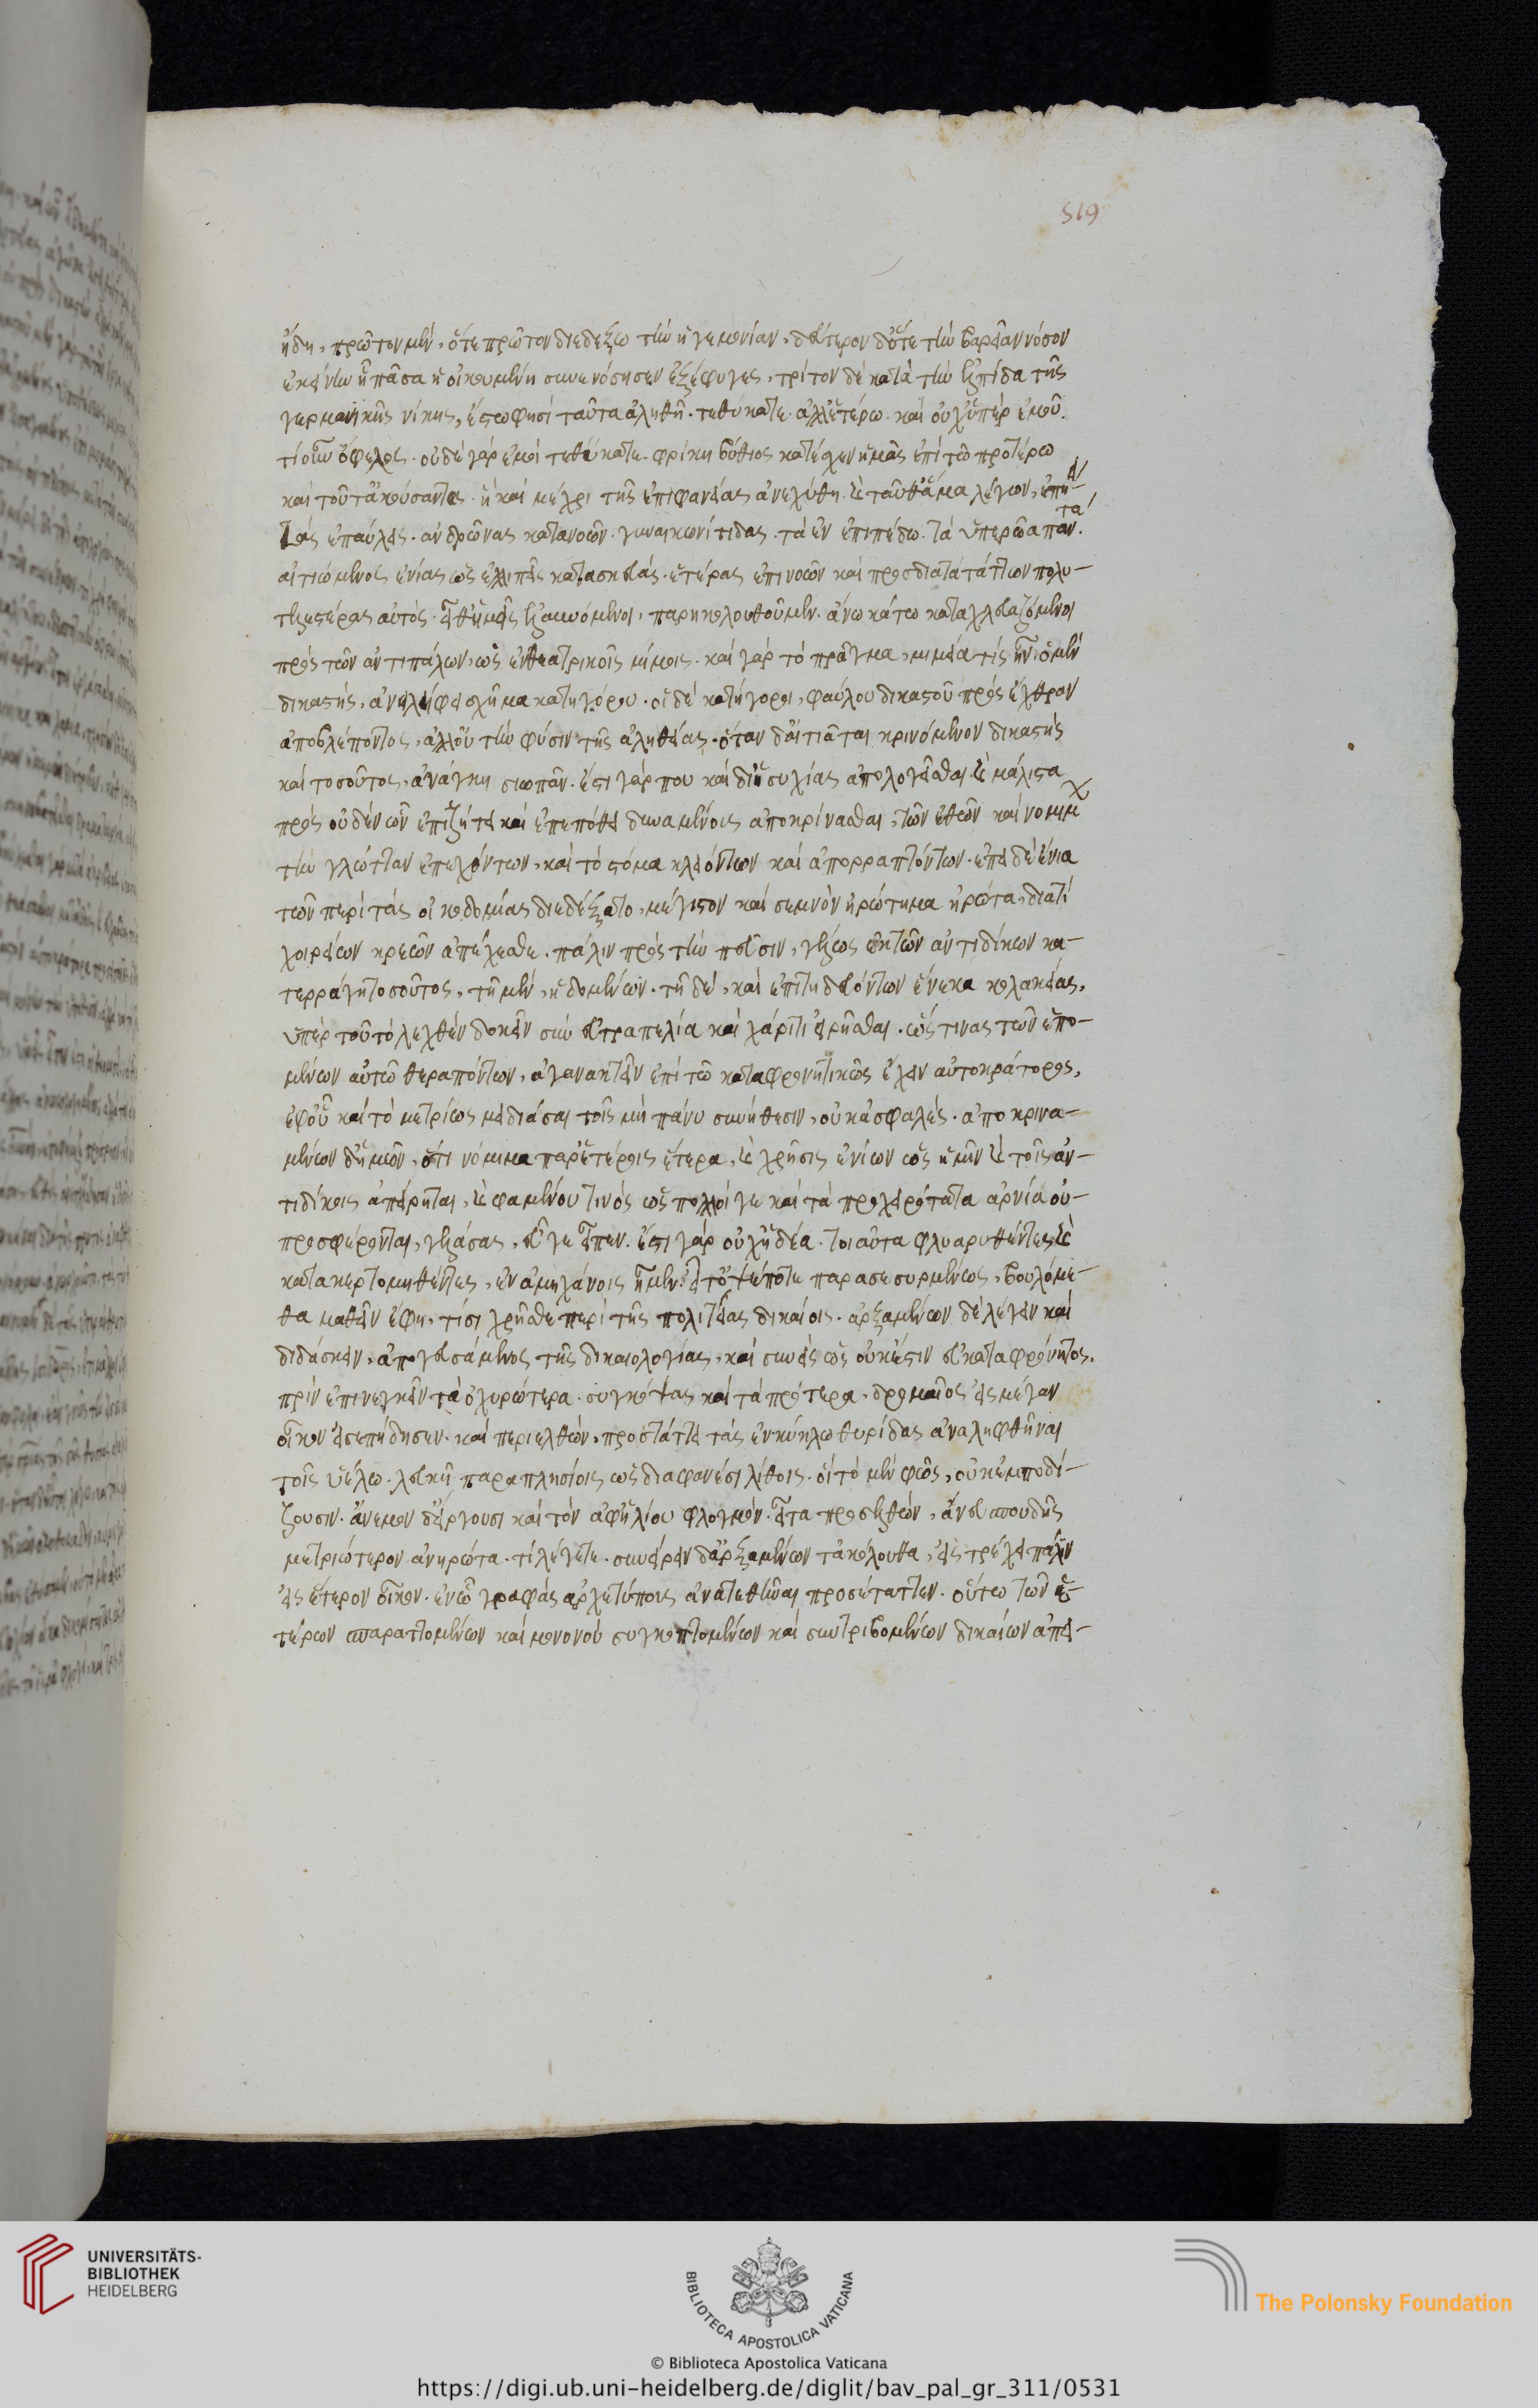 519
ἤδη, πρῶτον μὲν, ὅτε πρῶτον διεδέξω τὴν ἡγεμονίαν, δεύτερον δ' ὅτε τὴν βαρεῖαν νόσον
ἐκείνην ἣν πᾶσα ἡ οἰκουμένη συνενόσησεν ἐξέφυγες, τρίτον δὲ κατὰ τὴν ἐλπίδα τῆς
γερμανικῆς νίκης, ἔστω φησὶ ταῦτα ἀληθῆ. τεθύκατε. ἀλλ' ἑτέρῳ. κἂν οὐχ ὑπὲρ ἐμοῦ.
τί οὖν ὄφελος. οὐδὲ γὰρ ἐμοὶ τεθύκατε. φρίκη βύθιος κατέσχεν ἡμᾶς ἐπὶ τῷ προτέρῳ
καὶ τοῦτ' ἀκούσαντας. ἣ καὶ μέχρι τῆς ἐπιφανείας ἀνεχύθη. καὶ ταῦθ' ἅμα λέγων, ἐπῄει
τὰς ἐπαύλεις. ἀνδρῶνας κατανοῶν. γυναικωνίτιδας. τὰ ἐν ἐπιπέδῳ. τὰ ὑπερῷα πάντα.
αἰτιώμενος ἐνίας ὡς ἐλλιπεῖς κατασκευάς. ἑτέρας ἐπινοῶν καὶ προσδιατάττων πολυ-
τελεστέρας αὐτός. εἶθ' ἡμεῖς ἐλαυνόμενοι, παρηκολουθοῦμεν. ἄνω κάτω καταχλευαζόμενοι
πρὸς τῶν ἀντιπάλων, ὡς ἐν θεατρικοῖς μίμοις. καὶ γὰρ τὸ πρᾶγμα, μιμεία τίς ἦν. ὁ μὲν
δικαστής, ἀνειλήφει σχῆμα κατηγόρου. οἱ δὲ κατήγοροι, φαύλου δικαστοῦ πρὸς ἔχθραν
ἀποβλέποντος, ἀλλ' οὐ τὴν φύσιν τῆς ἀληθείας. ὅταν δ' αἰτιᾶται κρινόμενον δικαστής
καὶ τοσοῦτος, ἀνάγκη σιωπᾶν. ἔστι γάρ που καὶ δι' ἡσυχίας ἀπολογεῖσθαι. καὶ μάλιστα
πρὸς οὐδὲν ὧν ἐπεζήτει καὶ ἐπεπόθει δυναμένοις ἀποκρίνασθαι, τῶν ἐθῶν καὶ νομίμων
τὴν γλῶτταν ἐπεχόντων, καὶ τὸ στόμα κλειόντων καὶ ἀπορραπτόντων. ἐπεὶ δὲ ἔνια
τῶν περὶ τὰς οἰκοδομίας διεδέξατο, μέγιστον καὶ σεμνὸν ἠρώτημα ἠρώτα, διατί
χοιρείων κρεῶν ἀπέχεσθε. πάλιν πρὸς τὴν πεῦσιν, γέλως ἐκ τῶν ἀντιδίκων κα-
τερράγη τοσοῦτος, τῇ μὲν, ἡδομένων. τῇ δὲ, καὶ ἐπιτηδευόντων ἕνεκα κολακείας,
ὑπὲρ τοῦ τὸ λεχθὲν δοκεῖν σὺν εὐτραπελίᾳ καὶ χάριτι εἰρῆσθαι. ὥς τινας τῶν ἑπο-
μένων αὐτῷ θεραπόντων, ἀγανακτεῖν ἐπὶ τῷ καταφρονητικῶς ἔχειν αὐτοκράτορος,
ἐφ' οὗ καὶ τὸ μετρίως μειδιᾶσαι τοῖς μὴ πάνυ συνήθεσιν, οὐκ ἀσφαλές. ἀποκρινα-
μένων δ' ἡμῶν, ὅτι νόμιμα παρ' ἑτέροις ἕτερα, καὶ χρῆσις ἐνίων ὡς ἡμῖν καὶ τοῖς ἀν-
τιδίκοις ἀπείρηται, καὶ φαμένου τινὸς ὡς πολλοί γε καὶ τὰ προχειρότατα ἀρνία οὐ
προσφέρονται, γελάσας, εὖ γε εἶπεν. ἔστι γὰρ οὐχ ἡδέα. τοιαῦτα φλυαρηθέντες καὶ
κατακερτομηθέντες, ἐν ἀμηχάνοις ἦμεν. εἶτ' ὀψέ ποτε παρασεσυρμένως, βουλόμε-
θα μαθεῖν ἔφη, τίσι χρῆσθε περὶ τῆς πολιτείας δικαίοις. ἀρξαμένων δὲ λέγειν καὶ
διδάσκειν, ἀπογευσάμενος τῆς δικαιολογίας, καὶ συνεὶς ὡς οὐκ ἔστιν εὐκαταφρόνητος,
πρὶν ἐπενεγκεῖν τὰ ὀχυρώτερα. συγκόψας καὶ τὰ πρότερα, δρομαῖος εἰς μέγαν
οἶκον εἰσεπήδησεν. καὶ περιελθὼν, προστάττει τὰς ἐν κύκλῳ θυρίδας ἀναληφθῆναι
τοῖς ὑέλῳ λευκῇ παραπλησίοις ὡς διαφανέσι λίθοις. οἳ τὸ μὲν φῶς, οὐκ ἐμποδί-
ζουσιν. ἄνεμον δ' εἴργουσι καὶ τὸν ἀφ' ἡλίου φλογμόν. εἶτα προσελθὼν, ἄνευ σπουδῆς
μετριώτερον ἀνηρώτα. τί λέγετε. συνείρειν δ' ἀρξαμένων τἀκόλουθα, εἰστρέχει πάλιν
εἰς ἕτερον οἶκον. ἐν ᾧ γραφὰς ἀρχετύπους ἀνατεθῆναι προσέταττεν. οὕτω τῶν ἡμε-
τέρων σπαραττομένων καὶ μονονοὺ συγκοπτομένων καὶ συντριβομένων δικαίων ἀπει-
UNIVERSITÄTS-
BIBLIOTHEK
HEIDELBERG
BIBLIOTECA APOSTOLICA VATICANA
The Polonsky Foundation
© Biblioteca Apostolica Vaticana
https://digi.ub.uni-heidelberg.de/diglit/bav_pal_gr_311/0531